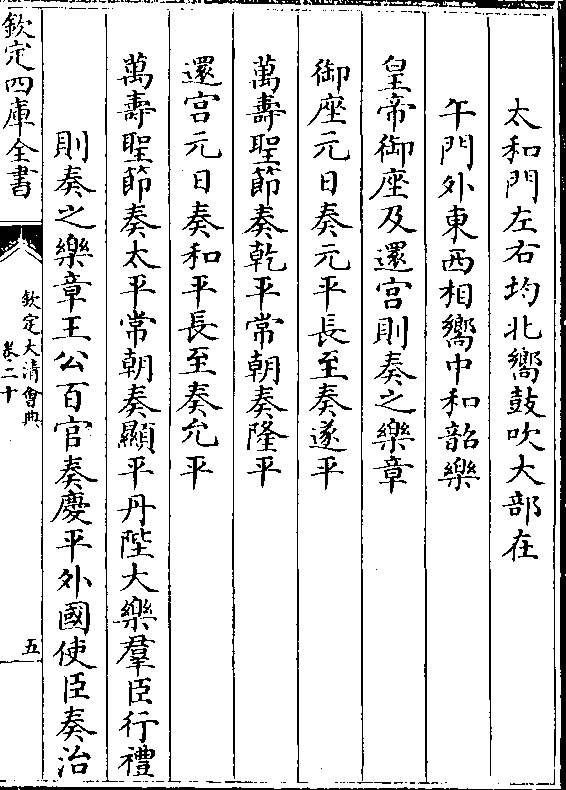 太和門左右均北嚮鼓吹大部在
午門外東西相嚮中和韶樂
皇帝御座及還宮則奏之樂章
御座元日奏元平長至奏遂平
萬壽聖節奏乾平常朝奏隆平
還宮元日奏和平長至奏允平
萬壽聖節奏太平常朝奏顯平丹陛大樂羣臣行禮
則奏之樂章王公百官奏慶平外國使臣奏治
欽定四庫全書
欽定大清會典
卷二十
五